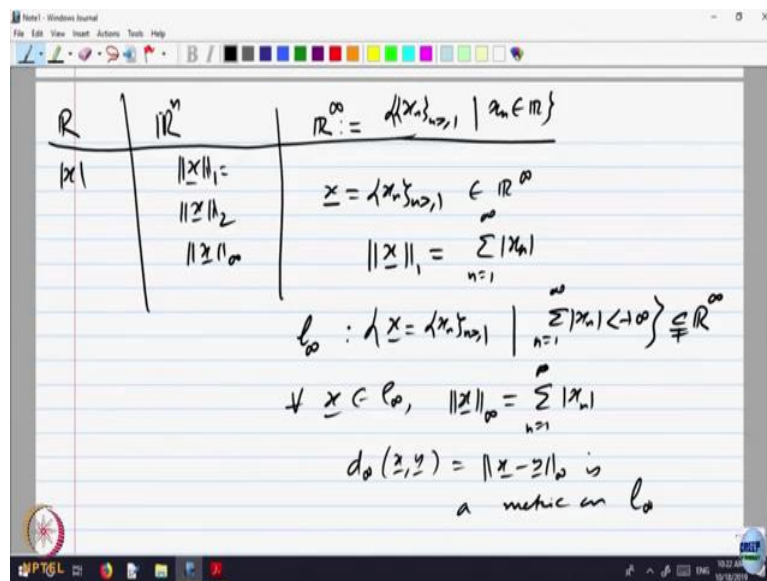 Note1 - Windows Journal
File Edit View Insert Actions Tools Help
ℝ | ℝⁿ | ℝ^∞ := {{xₙ}ₙ≥₁ | xₙ ∈ ℝ}
|x| | ||x||₁ =
||x||₂
||x||_∞
x = {xₙ}ₙ≥₁ ∈ ℝ^∞
||x||₁ = Σ_{n=1}^∞ |xₙ|
l_∞ : {x = {xₙ}ₙ≥₁ | Σ_{n=1}^∞ |xₙ| < +∞} ⊊ ℝ^∞
∀ x ∈ l_∞, ||x||_∞ = Σ_{n=1}^∞ |xₙ|
d_∞(x, y) = ||x - y||_∞ is
a metric on l_∞
NPTEL
ENG
10:22 AM
10/18/2019